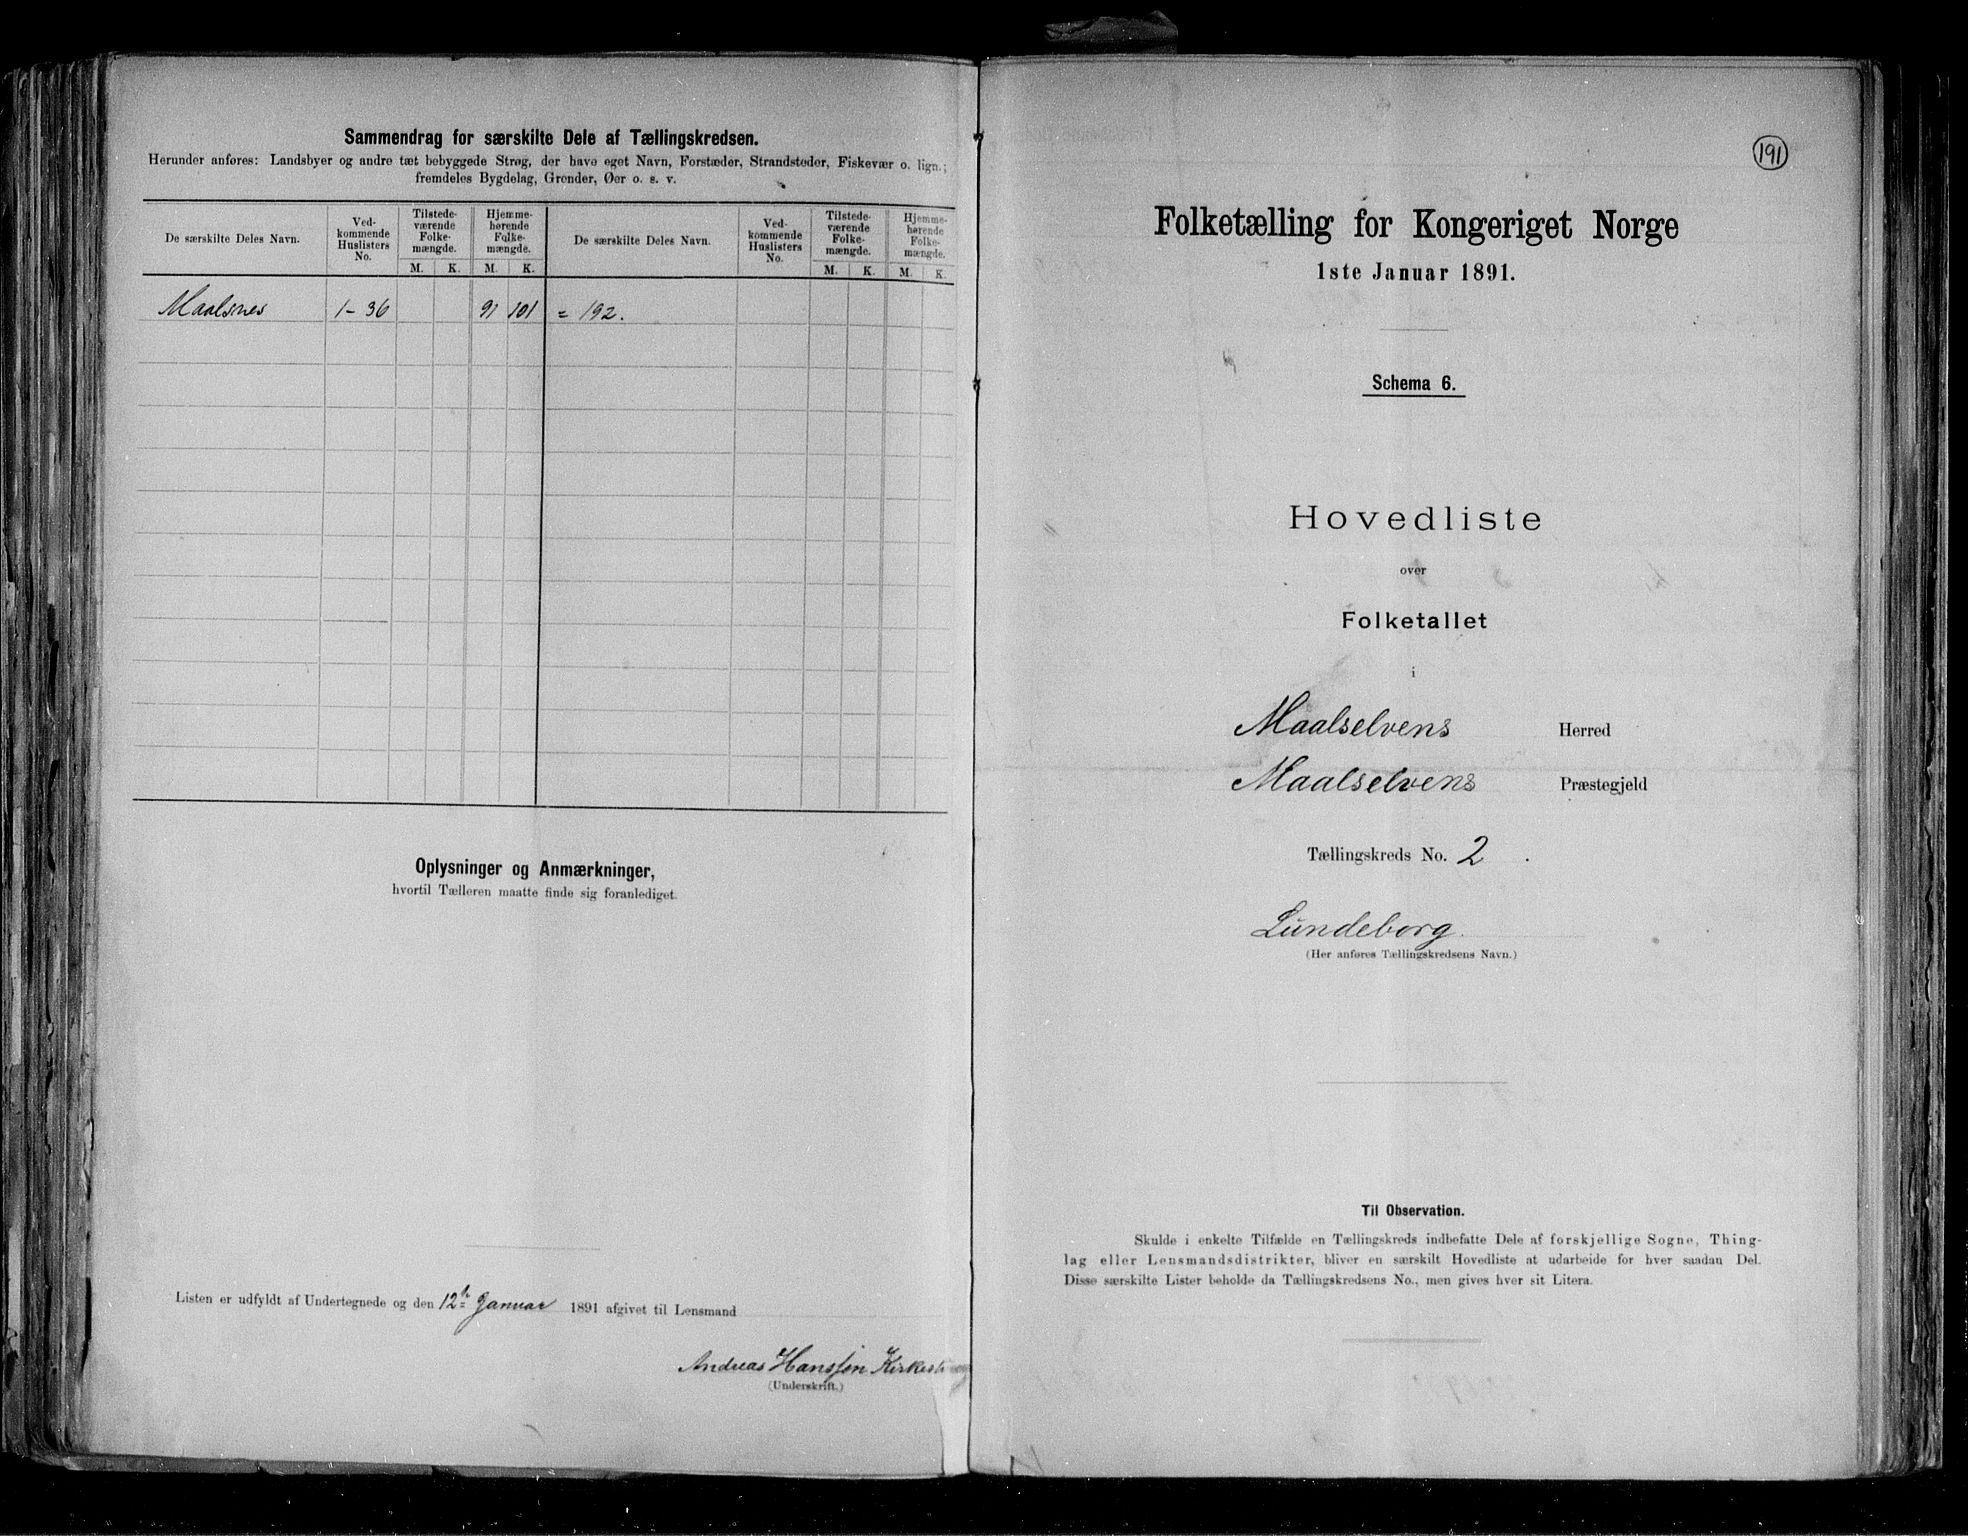 Sammendrag for særskilte Dele af Tællingskredsen.
Herunder anføres: Landsbyer og andre tæt bebyggede Strøg, der have eget Navn, Forstæder, Strandsteder, Fiskevær o. lign.;
fremdeles Bygdelag, Grender, Øer o. s. v.
De særskilte Deles Navn. Ved-kommende Huslisters No. Tilstede-værende Folke-mængde. Hjemme-hørende Folke-mængde. De særskilte Deles Navn. Ved-kommende Huslisters No. Tilstede-værende Folke-mængde. Hjemme-hørende Folke-mængde.
M. K. M. K. M. K. M. K.
Maalsnes 1-36 91 101 = 192.
Oplysninger og Anmærkninger,
hvortil Tælleren maatte finde sig foranlediget.
Listen er udfyldt af Undertegnede og den 12te Januar 1891 afgivet til Lensmand
Andreas Hanssen
(Underskrift.)
191
Folketælling for Kongeriget Norge
1ste Januar 1891.
Schema 6.
Hovedliste
over
Folketallet
i
Maalselvens Herred
Maalselvens Præstegjeld
Tællingskreds No. 2.
Lundeborg.
(Her anføres Tællingskredsens Navn.)
Til Observation.
Skulde i enkelte Tilfælde en Tællingskreds indbefatte Dele af forskjellige Sogne, Thing-
lag eller Lensmandsdistrikter, bliver en særskilt Hovedliste at udarbeide for hver saadan Del.
Disse særskilte Lister beholde da Tællingskredsens No., men gives hver sit Litera.